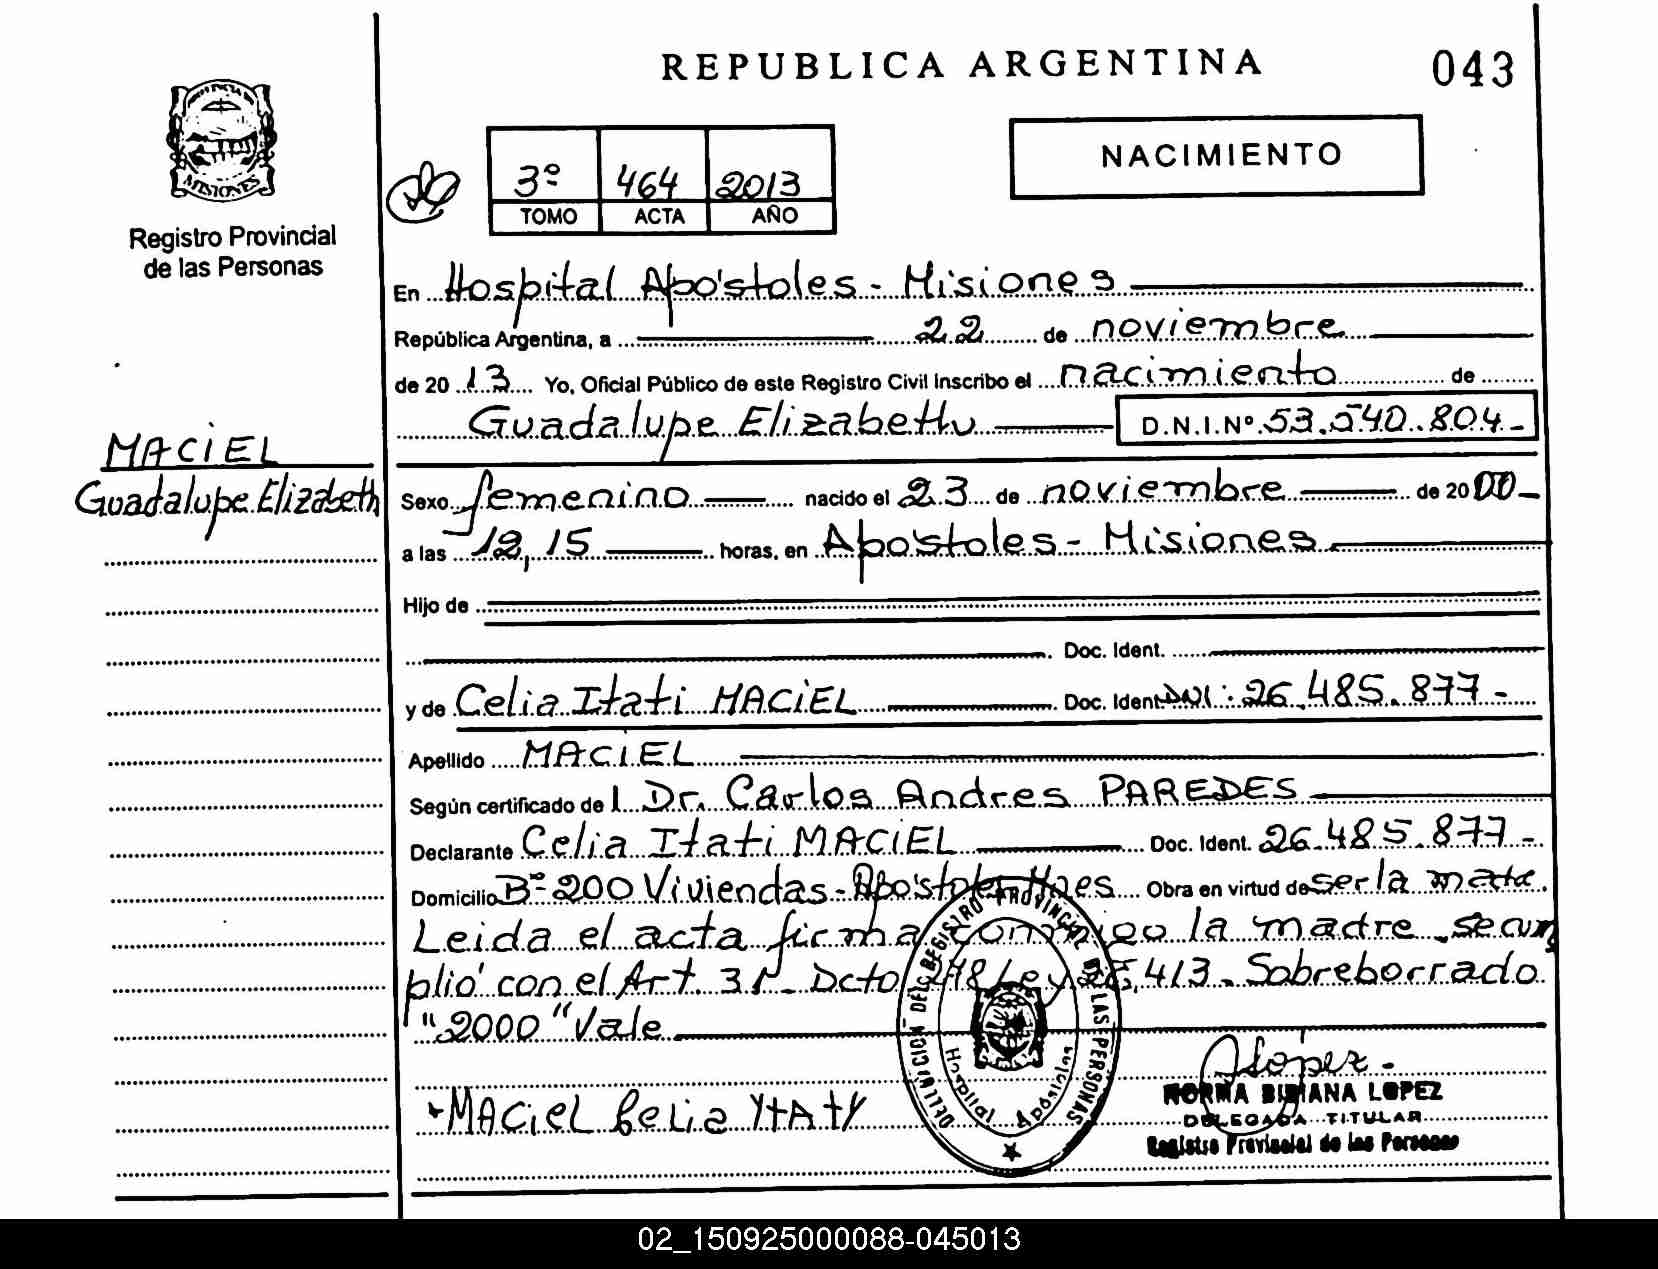 REPUBLICA ARGENTINA
043
NACIMIENTO
MISIONES
Registro Provincial
de las Personas
3º 464 2013
TOMO ACTA AÑO
En Hospital Apóstoles - Misiones
República Argentina, a 22 de noviembre
de 2013 Yo, Oficial Público de este Registro Civil Inscribo el nacimiento de
Guadalupe Elizabeth D.N.I.Nº.53.540.804.-
MACIEL
Guadalupe Elizabeth
Sexo femenino nacido el 23 de noviembre de 2000-
a las 12,15 horas, en Apóstoles - Misiones
Hijo de
Doc. Ident.
y de Celia Itati MACIEL Doc. Ident. DNI: 26.485.877-
Apellido MACIEL
Según certificado del Dr. Carlos Andres PAREDES
Declarante Celia Itati MACIEL Doc. Ident. 26.485.877-
Domicilio Bº 200 Viviendas - Apóstoles Obra en virtud de ser la
Leida el acta firma conmigo la madre se cum
plió con el Art. 31 - Dcto Ley 413 - Sobreborrado
"2000" Vale
MACiel Celia YtAtY
DELEGACION DEL REGISTRO PROVINCIAL DE LAS PERSONAS
Hospital Apóstoles
Lopez -
NORMA BIBIANA LOPEZ
DELEGADA TITULAR
Registro Provincial de las Personas
02_150925000088-045013